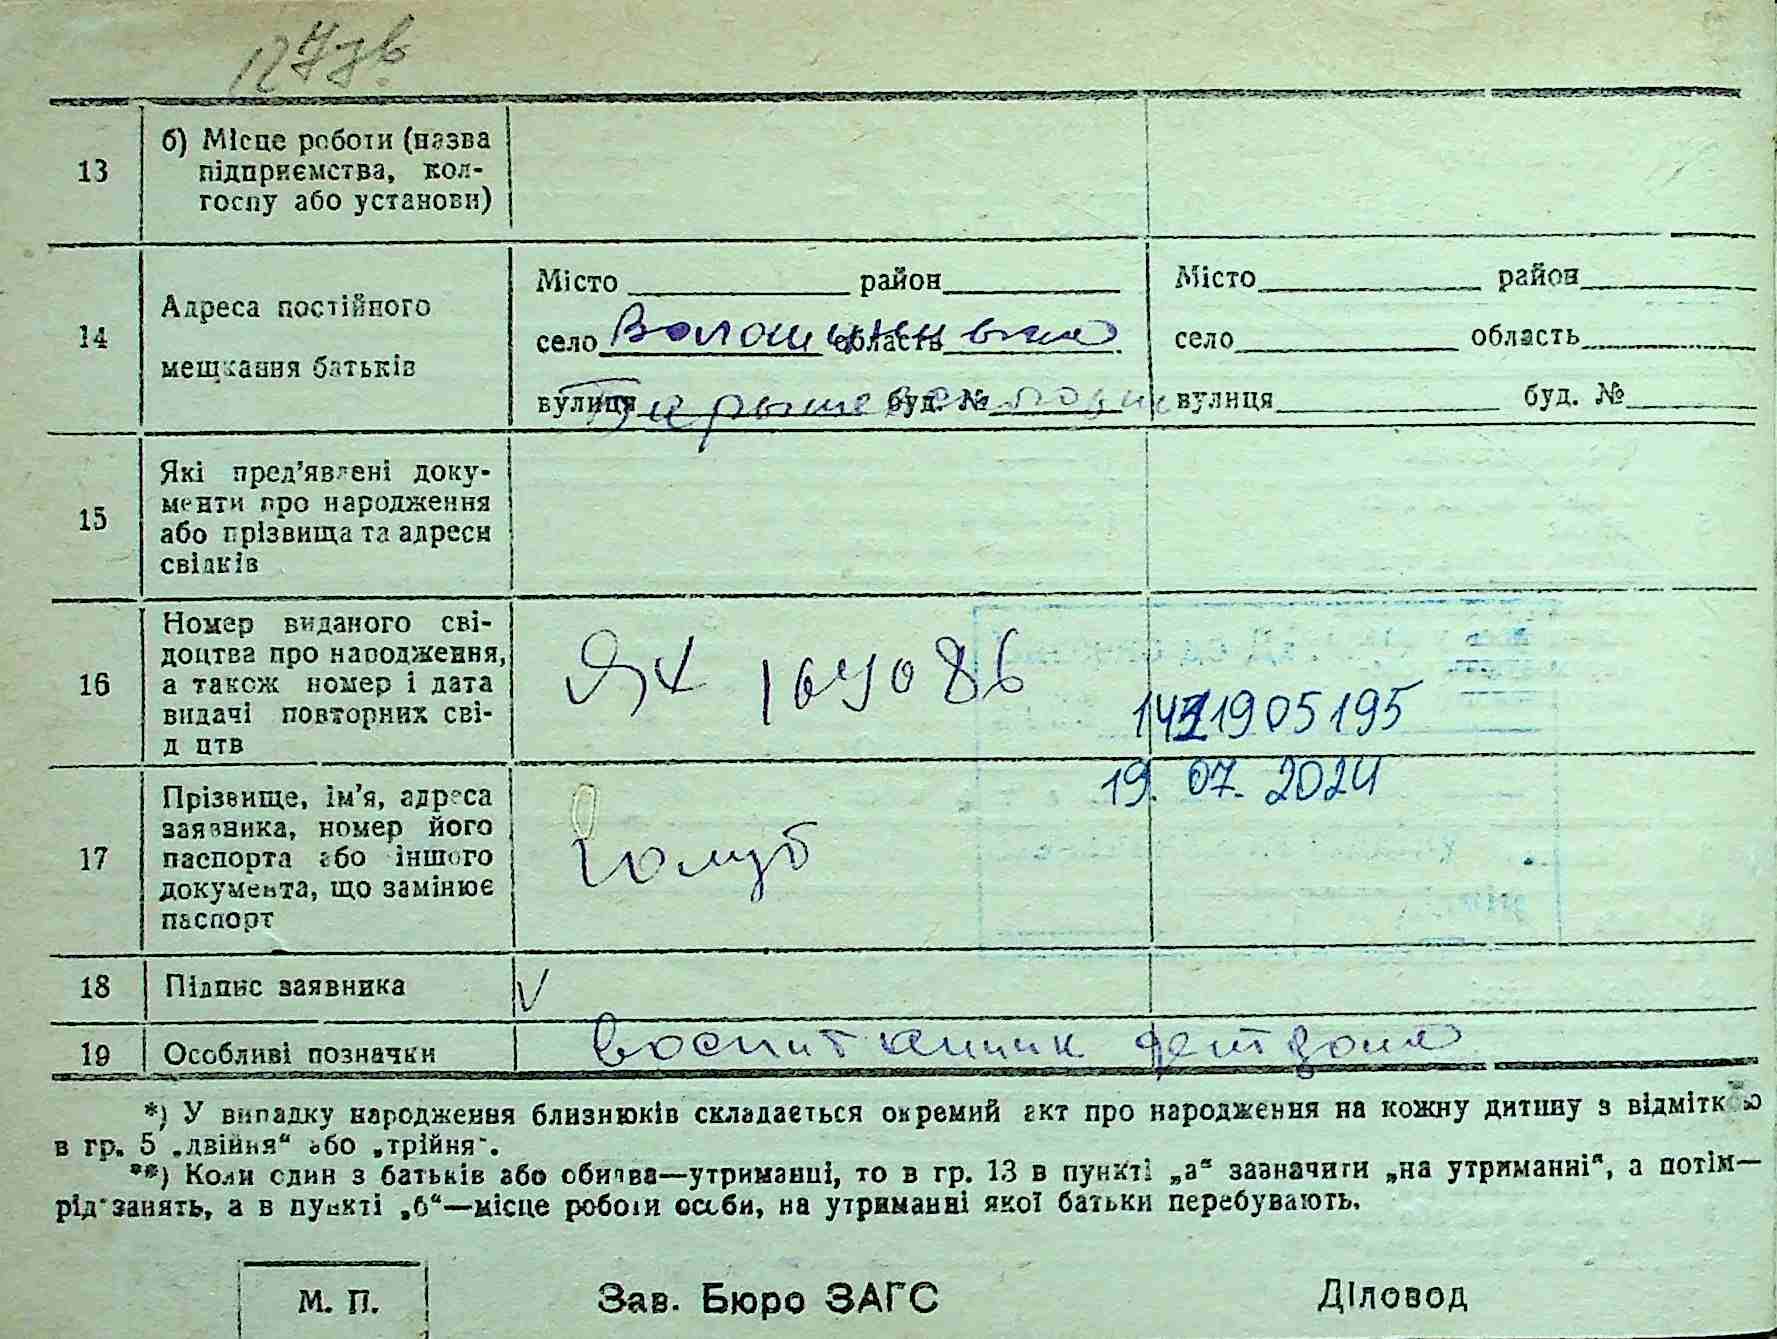 13
б) Місце роботи (назва
підприємства, кол-
госпу або установи)
14
Адреса постійного
мешкання батьків
Місто район
село Волошиновка область
вулиця буд. №
Місто район
село область
вулиця буд. №
15
Які пред'явлені доку-
менти про народження
або прізвища та адреси
свідків
16
Номер виданого сві-
доцтва про народження,
а також номер і дата
видачі повторних сві-
д цтв
ЯХ 169086
19.07.2024
17
Прізвище, ім'я, адреса
заявника, номер його
паспорта або іншого
документа, що замінює
паспорт
Голуб
18
Підпис заявника
V
19
Особливі позначки
воспитанник детдома
*) У випадку народження близнюків складається окремий акт про народження на кожну дитину з відміткою
в гр. 5 „двійня“ або „трійня“.
**) Коли один з батьків або обидва—утриманці, то в гр. 13 в пункті „а“ зазначити „на утриманні“, а потім—
рід занять, а в пункті „б“—місце роботи особи, на утриманні якої батьки перебувають.
М. П.
Зав. Бюро ЗАГС
Діловод